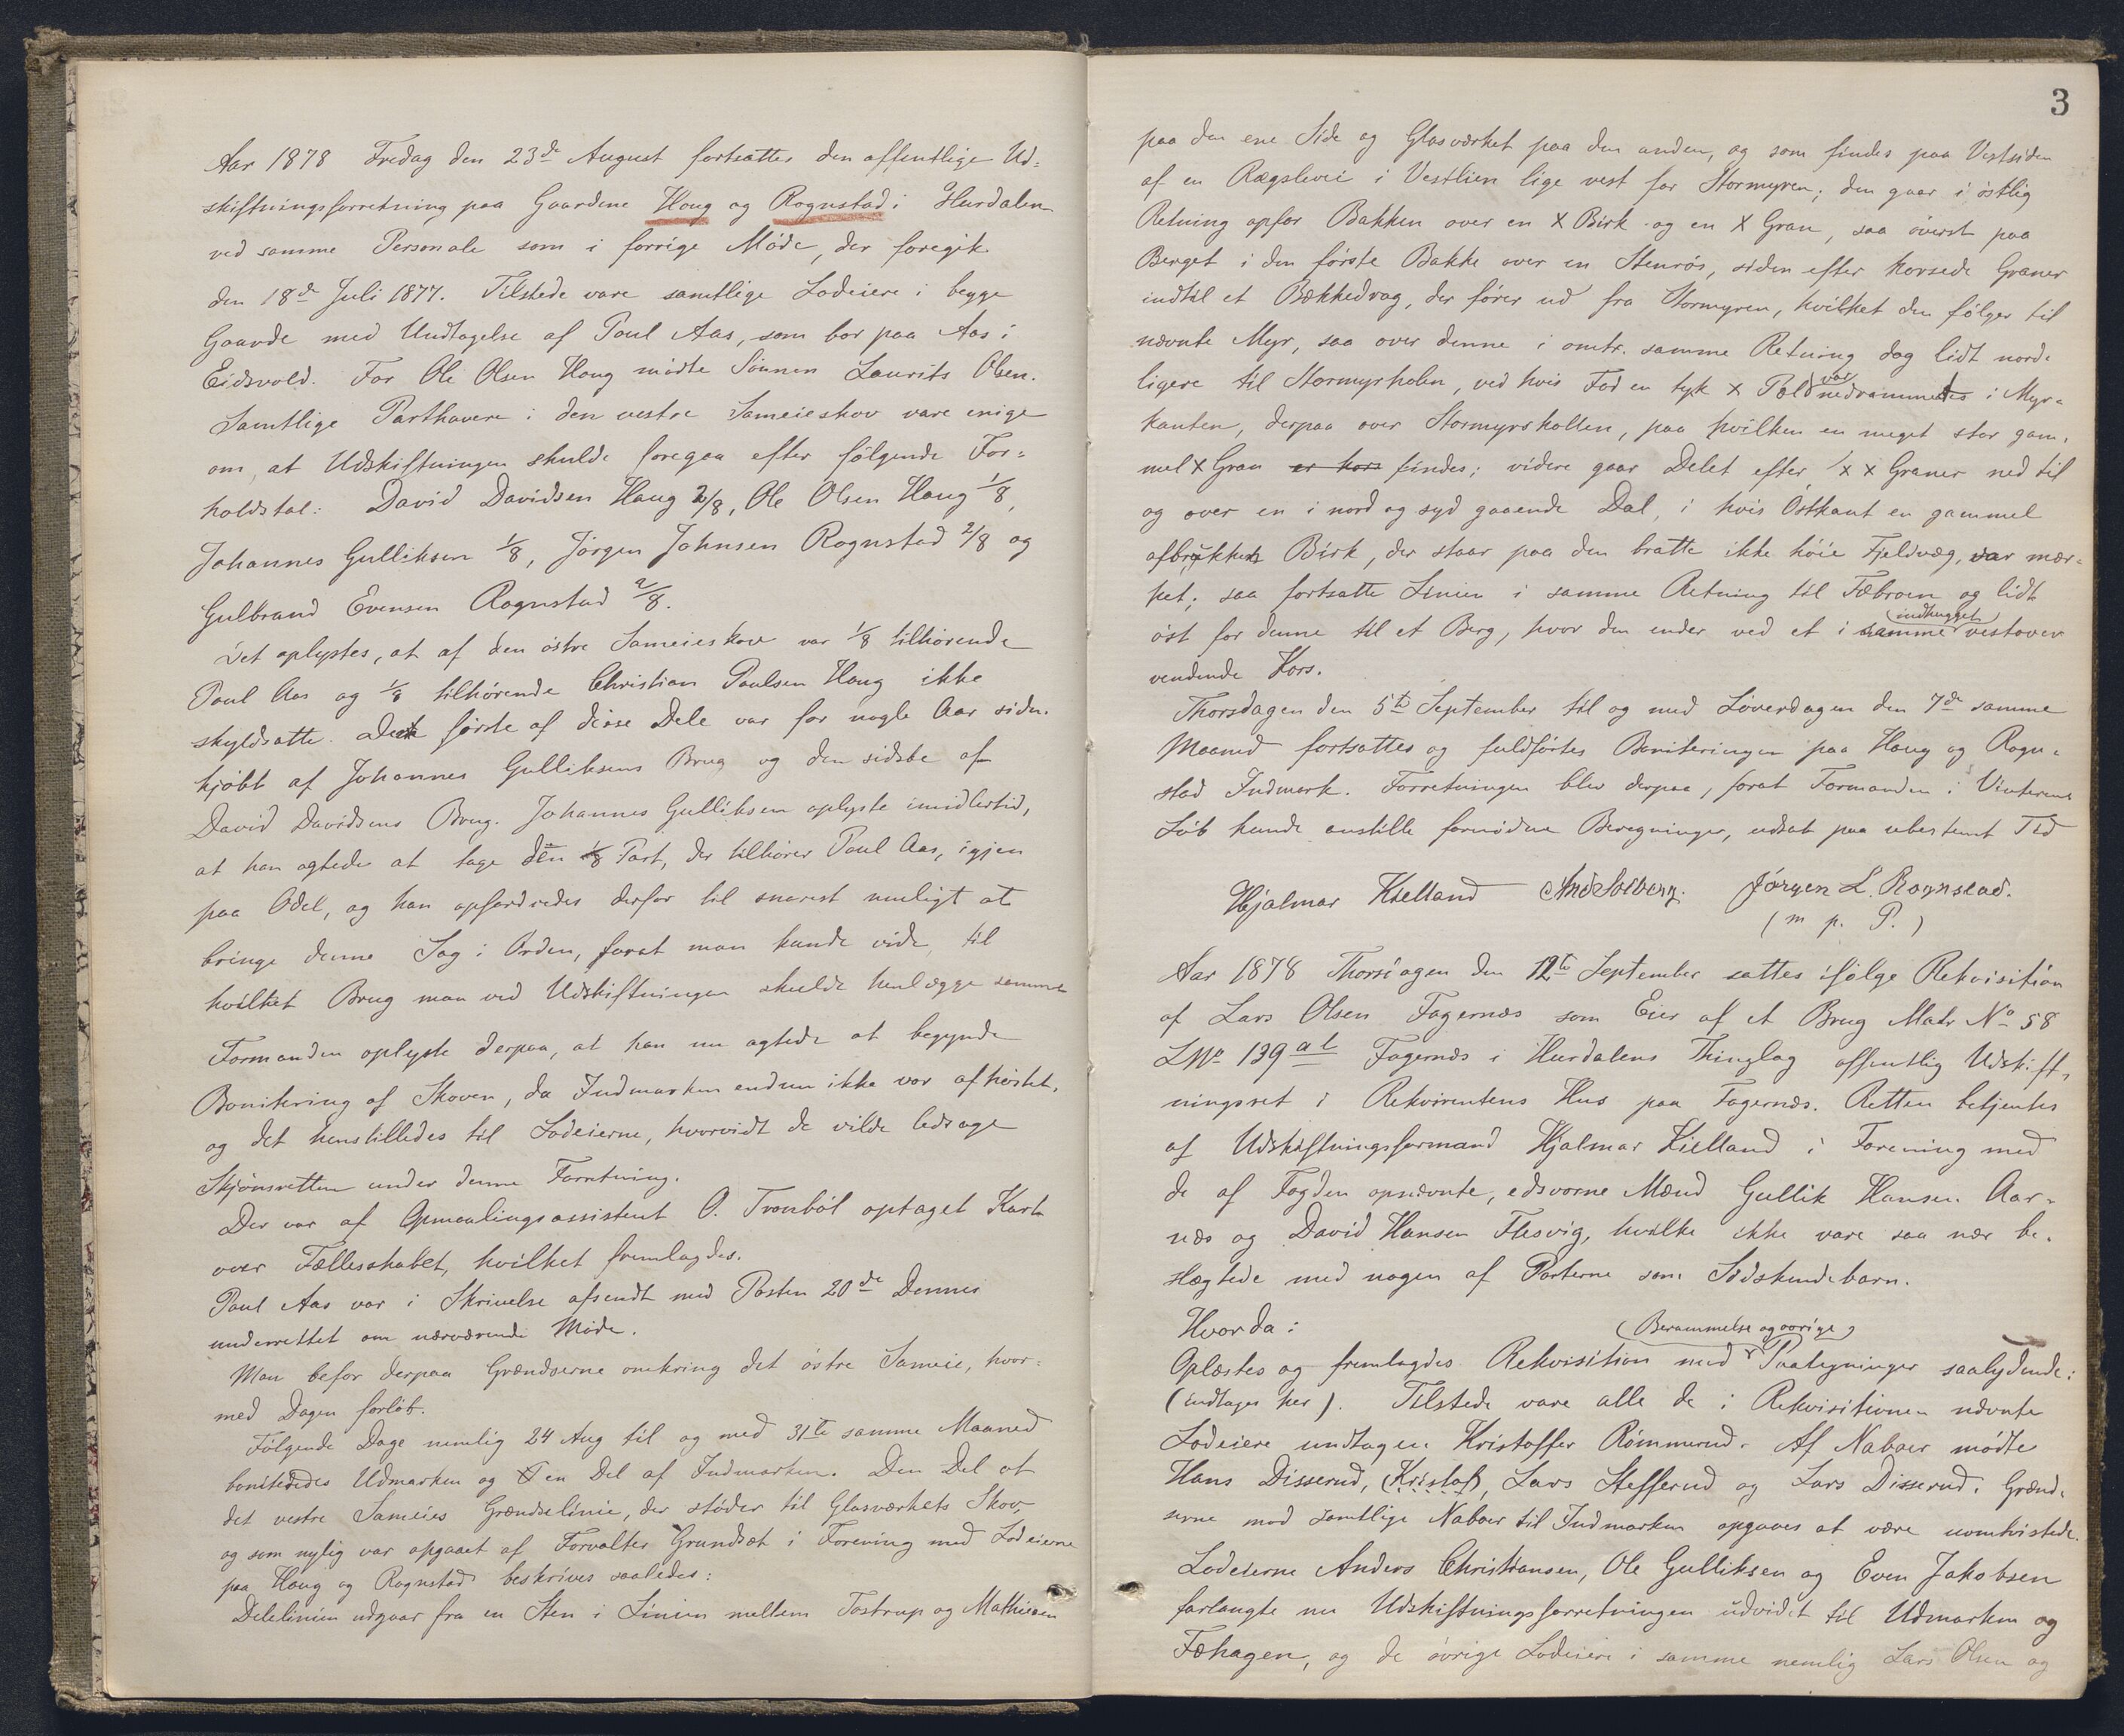 Aar 1878 Fredag den 23de August fortsattes den offentlige Ud=
skiftningsforretning paa Gaardene Houg og Rognstad i Hurdalen
ved samme Personale som i forrige Möde, der foregik
den 18de Juli 1877. Tilstede vare samtlige Lodeiere i begge
Gaarde med Undtagelse af Poul Aas, som bor paa Aas i
Eidsvold. For Ole Olsen Houg mödte Sönnen Laurits Olsen.
Samtlige Parthavere i den vestre Sameieskov vare enige
om, at Udskiftningen skulde foregaa efter fölgende For=
holdstal: David Davidsen Haug 2/8, Ole Olsen Haug 1/8,
Johannes Gulliksen 1/8, Jörgen Johnsen Rognstad 2/8 og
Gulbrand Evensen Rognstad 2/8.
Det oplystes, at af den östre Sameieskov var 1/8 tilhörende
Poul Aas og 1/8 tilhörende Christian Poulsen Houg ikke
skyldsatte. Den förste af disse Dele var for nogle Aar siden
kjöbt af Johannes Gulliksens Brug og den sidste af
David Davidsens Brug. Johannes Gulliksen oplyste imidlertid,
at han agtede at tage den 1/8 Part, der tilhörer Poul Aas, igjen
paa Odel, og han opfordredes derfor til snarest muligt at
bringe denne Sag i Orden, forat man kunde vide, til
hvilket Brug man ved Udskiftningen skulde henlægge samme
Formanden oplyste derpaa, at han nu agtede at begynde
Bonitering af Skoven, da Indmarken endnu ikke var afhöstet,
og det henstilledes til Lodeierne, hvorvidt de vilde ledsage
Skjönsretten under denne Forretning.
Der var af Opmaalingsassistent O. Tronböl optaget Kart
over Fællesskabet, hvilket fremlagdes.
Poul Aas var i Skrivelse afsendt med Posten 20de Dennes
underrettet om nærværende Möde.
Man befor derpaa Grændserne omkring det östre Sameie, hvor=
med Dagen forlöb.
Fölgende Dage nemlig 24 Aug til og med 31te samme Maaned
boniteredes Udmarken og en Del af Indmarken. Den Del af
det vestre Sameies Grændselinie, der stöder til Glasværkets Skov,
og som nylig var opgaaet af Forvalter Grundsæt i Forening med Lodeierne
paa Houg og Rognstad beskrives saaledes:
Delelinien udgaar fra en Sten i Linien mellem Tostrup og Mathiesen
3
paa den ene Side og Glasværket paa den anden, og som findes paa Vestsiden
af en Rægslevei i Vestlien lige vest for Stormyren; den gaar i östlig
Retning opfor Bakken over en X Birk og en X Gran, saa överst paa
Berget i den förste Bakke over en Stenrös, siden efter korsede Graner
indtil et Bækkedrag, der förer ud fra Stormyren, hvilket den fölger til
nævnte Myr, saa over denne i omtr. samme Retning dog lidt nord=
ligere til Stormyrholen, ved hvis Fod en tyk X Pæl var nedrammet i Myr=
kanten, derpaa over Stormyrskollen, paa hvilken en meget stor gam=
mel X Gran er kors findes; videre gaar Delet efter X X Graner ned til
og over en i nord og syd gaaende Dal, i hvis Östkant en gammel
afbrukket Birk, der staar paa den bratte ikke höie Fjeldvæg, var mær=
ket; saa fortsatte Linien i samme Retning til Fæbroen og lidt
öst for denne til et Berg, hvor den ender ved et i samme (indhugget) vestover
vendende Kors.
Thorsdagen den 5te September til og med Löverdagen den 7de samme
Maaned fortsattes og fuldförtes Boniteringen paa Houg og Rogn=
stad Indmark. Forretningen blev derpaa, forat Formanden i Vinterens
Löb kunde anstille fornödne Beregninger, udsat paa ubestemt Tid
Hjalmar Kielland And Solberg. Jörgen L. Rognstad.
(m p. P.)
Aar 1878 Thorsdagen den 12te September sattes ifölge Rekvisition
af Lars Olsen Fagernæs som Eier af et Brug Matr No 58
LNo 139 a l Fagernæs i Hurdalens Thinglag offentlig Udskift=
ningsret i Rekvirentens Hus paa Fagernæs. Retten betjentes
af Udskiftningsformand Hjalmar Kielland i Forening med
de af Fogden opnævnte, edsvorne Mænd Gullik Hansen Aar=
næs og David Hansen Flesvig, hvilke ikke vare saa nær be=
slægtede med nogen af Parterne som Södskendebarn.
Hvorda:
Oplæstes og fremlagdes Rekvisition med (Berammelse og övrige) Paategninger saalydende:
(indtages her). Tilstede vare alle de i Rekvisitionen nævnte
Lodeiere undtagen Kristoffer Römmerud. Af Naboer mödte
Hans Disserud, (Kristof), Lars Stefferud og Lars Disserud. Grænd=
serne mod samtlige Naboer til Indmarken opgaves at være uomtvistede.
Lodeierne Anders Christiansen, Ole Gulliksen og Even Jakobsen
forlangte nu Udskiftningsforretningen udvidet til Udmarken og
Fæhagen, og de övrige Lodeiere i samme nemlig Lars Olsen og